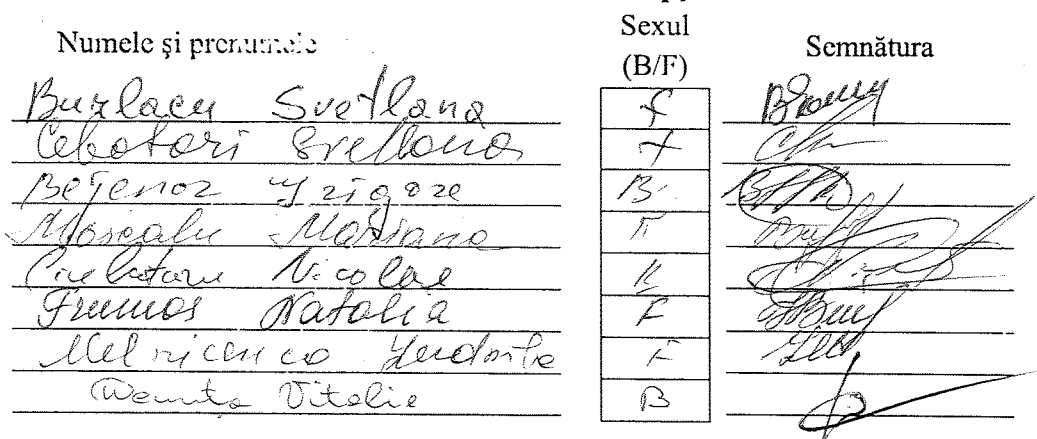 Numele și prenumele Sexul (B/F) Semnătura
Burlacu Svetlana f
Cebotari Svetlana f
Bejenar Grigore B.
Moscalu Mariana F
Ciubotaru Nicolae B
Frumos Natalia F
Melnicenco F
Vitalie B